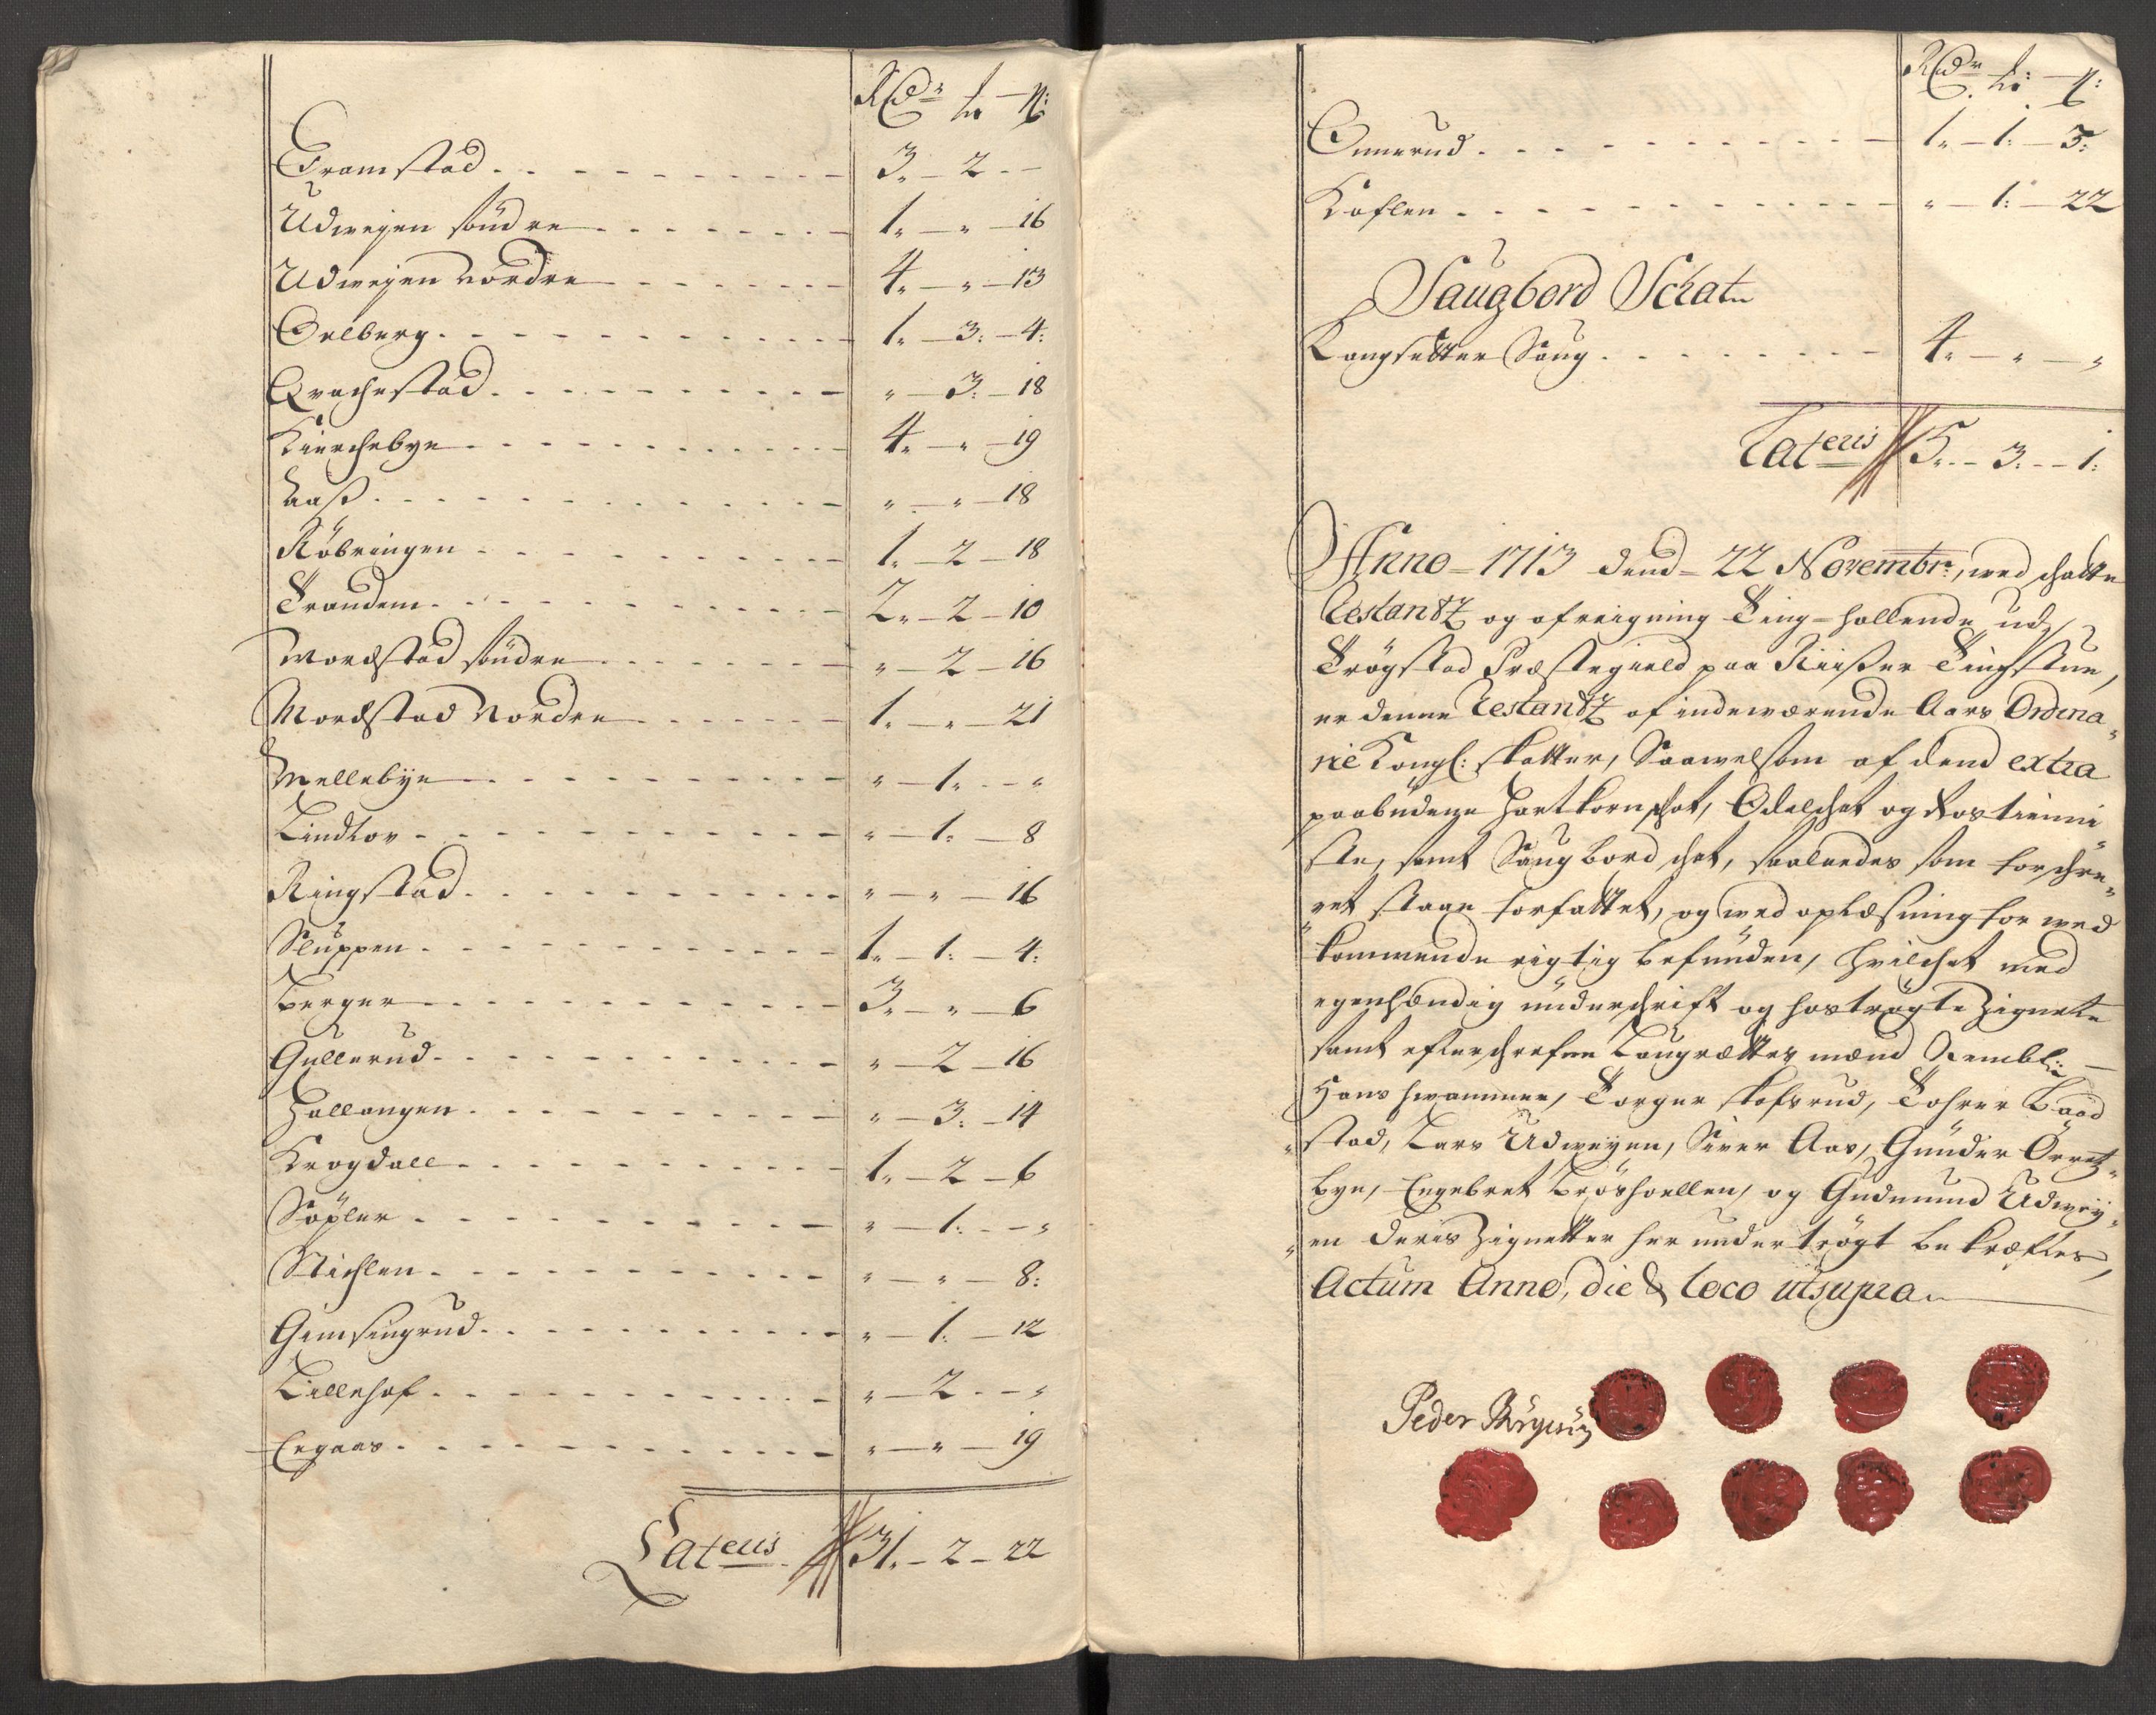 Rdr ß: β:
Framstad 3. - 2. -
Udweyen söndre 1. - " - 16
Udweyen nordre 4. - " - 13
Oelberg 1. - 3. - 4:
Qvachestad " - 3. - 18
Kierchebye 4. - " - 19
Aaß " - " - 18
Röbringen 1. - 2 - 18
Trandem 2. - 2 - 10
Mordstad söndre " - 2 - 16
Mordstad Nordre 1. - " - 21
Mellebye " - 1. - "
Lindhov " - 1. - 8
Ringstad " - " - 16
Sluppen 1. - 1. - 4:
Berger 3. - " - 6
Gullerud " - 2 - 16
Hallangen " - 3. - 14
Krogdall 1. - 2 - 6
Söpler " - 1. - "
Stichlen " - " - 8:
Gimsingrud " - 1. - 12
Lillehof " - 2 - "
Engaas " - " - 19
Lateris 31. - 2 - 22
Rdr ß: β:
Onnerud 1. - 1. - 3:
Kaflen " - 1. - 22
Saugbord Schat
Langsetter Saug 4. - " - "
Lateris 5. - 3. - 1:
Anno 1713 dend 22 Novembr:, wed schatte
Restantz og afreigning Ting-hollende udj
Trögstad Præstegield paa Riißer Tingstue,
er denne Restantz af indewærende Aars Ordina
rie Kongl: skatter, Saawelsom af dend extra
paabudene Hartkornschat, Odelschat og Rostienni
ste, samt Saugbord schat, saaledes som forschre
vet staar forfattet, og wed oplæsning for wed
kommende rigtig befunden, hvilchet med
egenhændig underschrift og hoströgte Zignette
samt efterschrefne Laugrettes mænd Nembl:
Hans Swammen, Torger skofsrud, Tohrer Baad
stad, Lars Udweyen, Siver Aas, Gunder Örret
bye, Engebret Bröshoellen, og Gudmund Udwey
en deris Zignetter her undertrögt bekræftes,
Actum Anno, die & loco utsupra
Peder